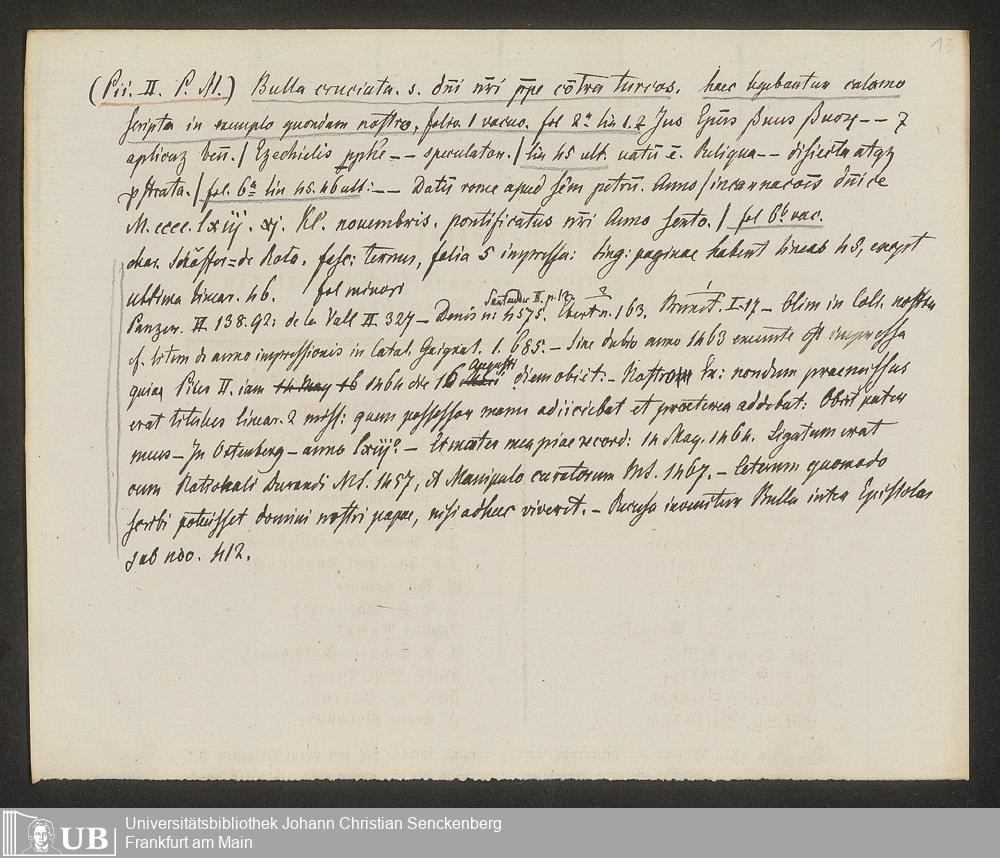 13
(Pii. II. P. M.) Bulla cruciata. s. dñi nr̄i p̄pe cōtra turcos. haec legebantur calamo
scripta in exemplo quondam nostro, folio 1 vacuo. fol 2a lin 1. Ep̄us suus
aplicaz ben̄. / Ezechielis pphē -- speculator. / lin 45 ult. Reliqua -- disiecta atqz
pstrata. / fol. 6a lin 45. 46 ult: -- Datū rome apud sc̄m petrū. Anno / incarnacōis dn̄ice
M. cccc. lxiij. xj. Kl. novembris. pontificatus nr̄i Anno sexto. / fol 6b vac.
char. Schöffer = de Rota. fasc: ternus, folia 5 impressa: sing: paginae habent lineas 45, except
ultima linear. 46. fol minori
Santander II. n. 2
Panzer. II. 138. 92: de la Vall II. 327 – Denis n: 4575. Ebert n. 163. Brunet. I. 17 – Olim in Coll. nostra
cf. litem de anno impressionis in Catal. Gaignat. 1. 685. – Sine dubio anno 1463 exeunte est impressa
Augusti
quia Pius II. iam 14 May 16 1464 die 16 diem obiit. – Nostro Ex: nondum praemissus
erat titulus linear. 2 miss: quem possessor manu adiiciebat et praeterea addebat: Obiit pater
meus – In Ostenberg – anno lxiij° – Et mater mea piae record: 14 May. 1464. Ligatum erat
cum Rationali Durandi M. 1457, et Manipulo curatorum Ms. 1467. – Ceterum quomodo
scribi potuisset domini nostri papae, nisi adhuc viveret. – Recusa invenitur Bulla inter Epistolas
sub nro. 412.
UB
Universitätsbibliothek Johann Christian Senckenberg
Frankfurt am Main